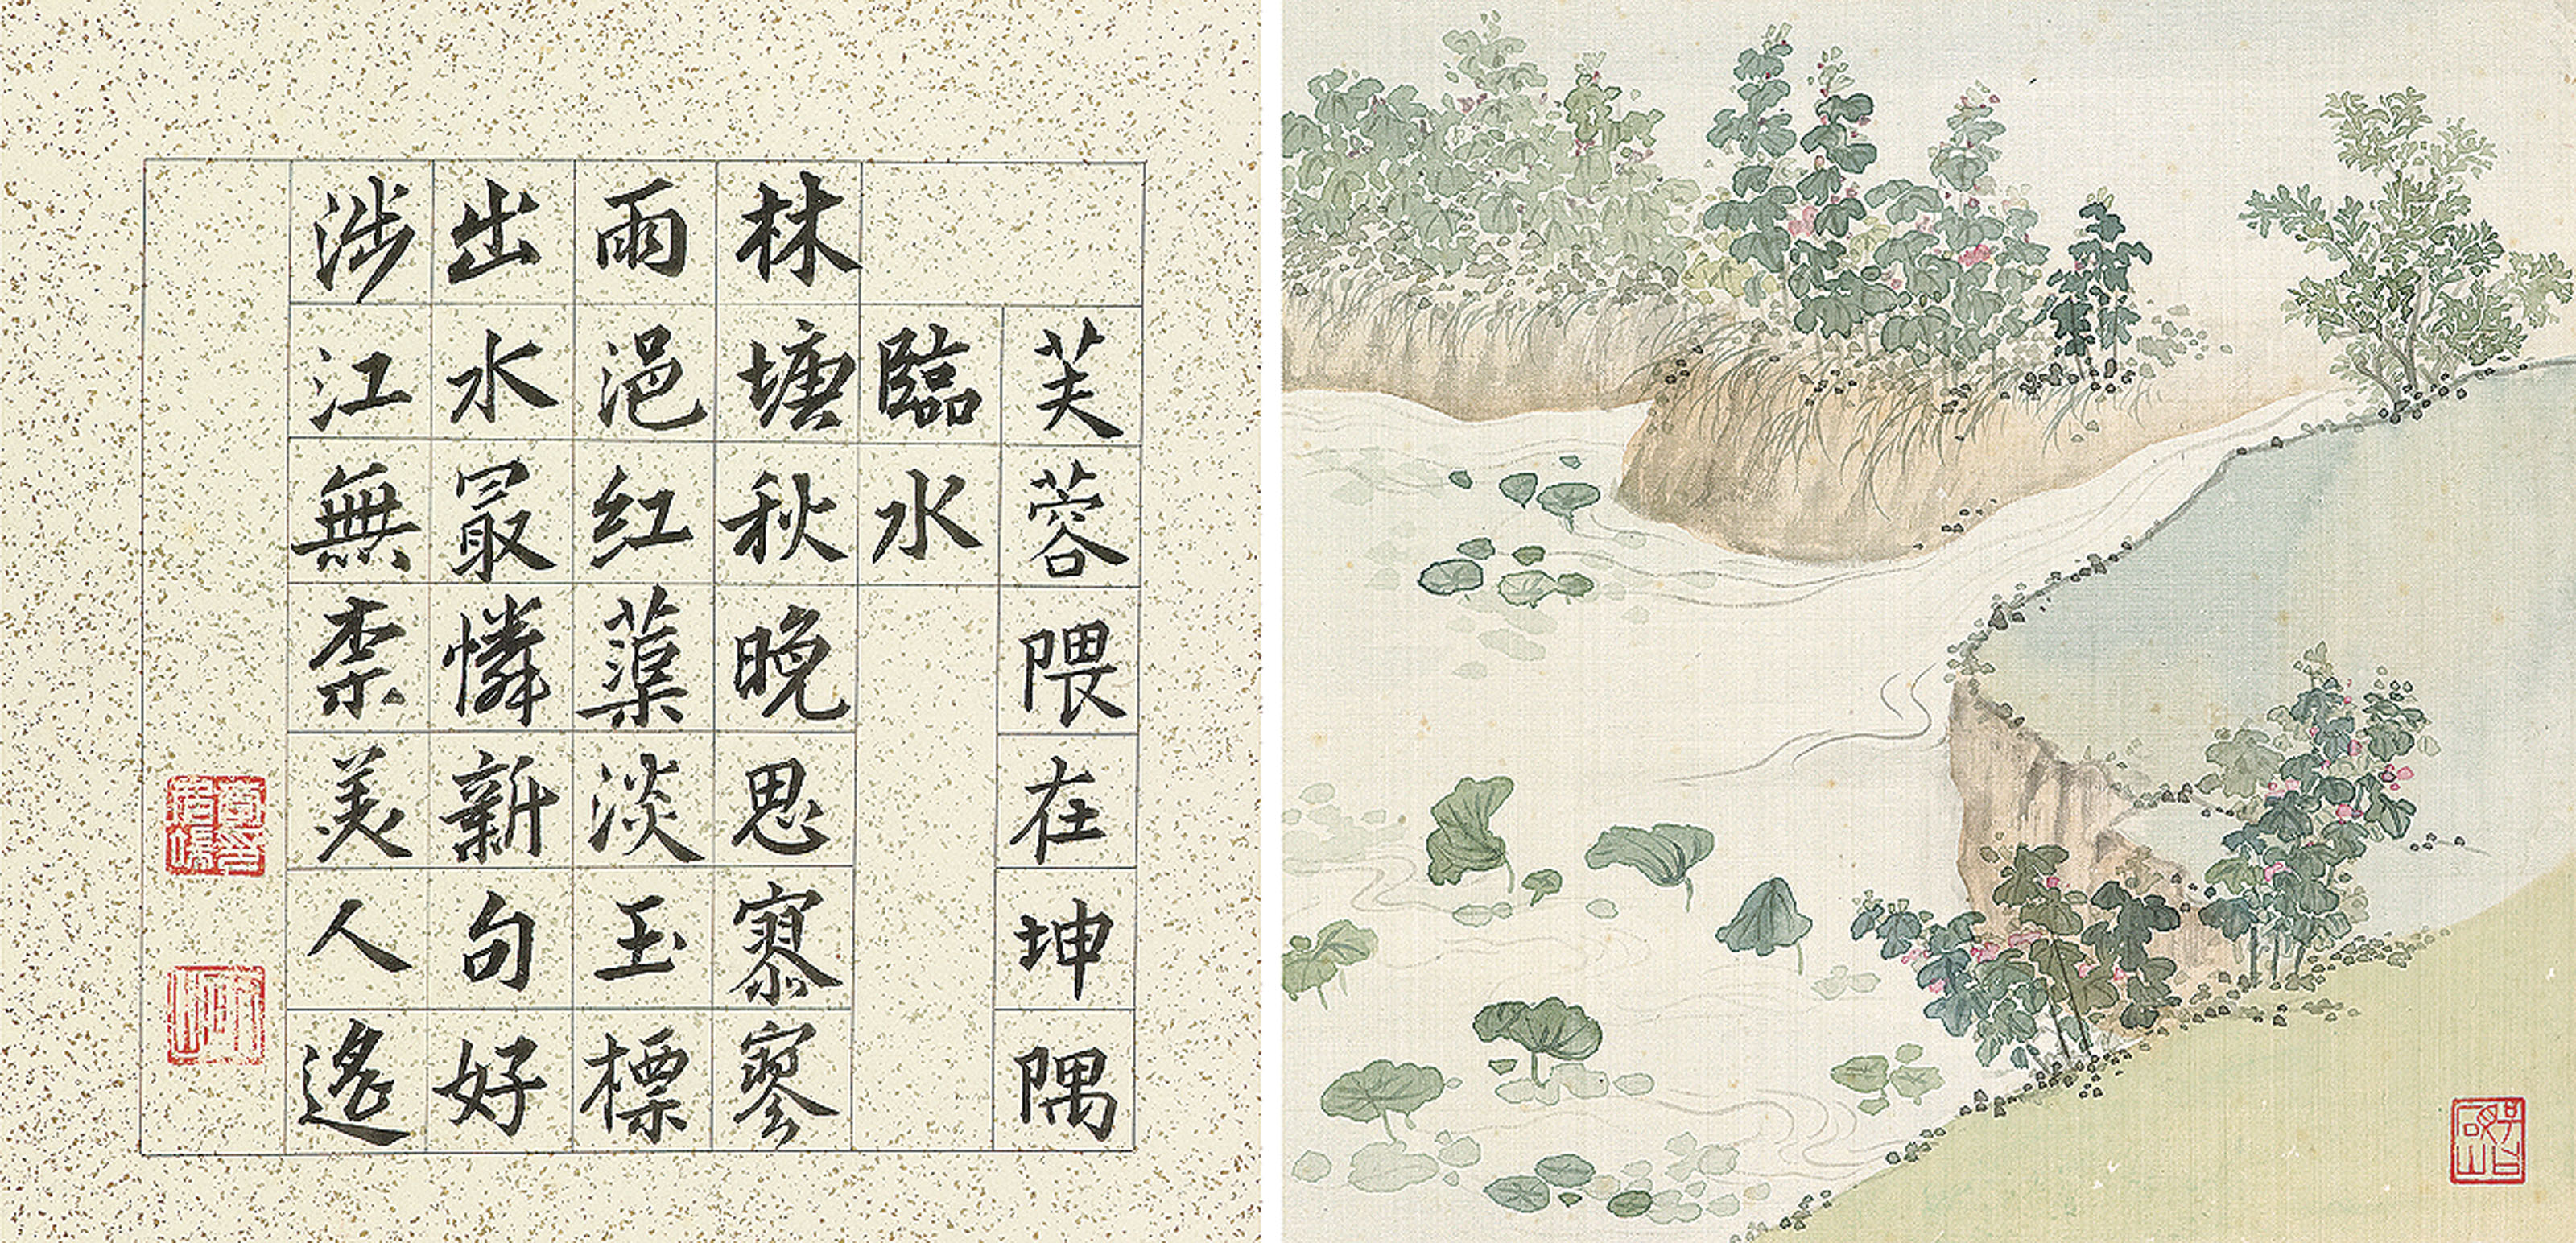 芙蓉隈在坤隅
臨水
林塘秋晚思寥寥
雨浥红蕖淡玉標
出水最憐新句好
涉江無柰美人遙